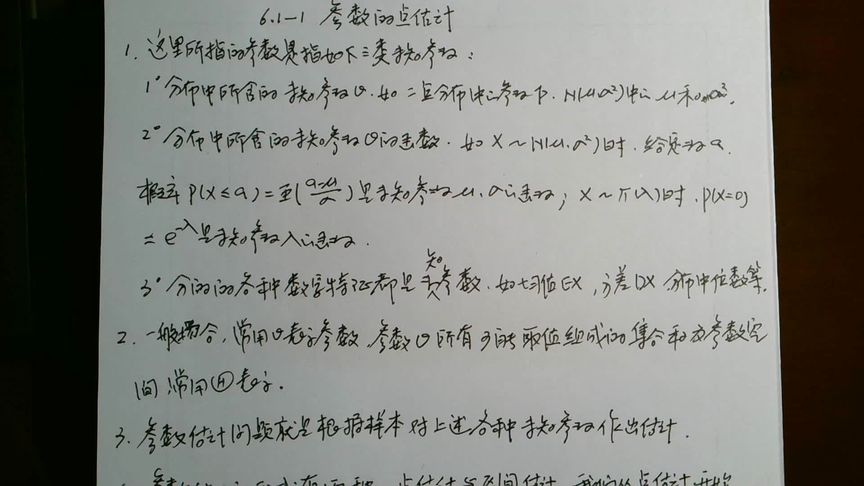 6.1-1 参数的点估计
1. 这里所指的参数是指如下三类未知参数:
1° 分布中所含的未知参数θ. 如二点分布中的参数P. N(μ,σ²)中的μ和σ².
2° 分布中所含的未知参数θ的函数. 如X~N(μ,σ²)时. 给定数a.
概率P(X≤a)=Φ(a-μ/σ)是未知参数μ.σ的函数; X~π(λ)时. P(X=0)
= e^-λ是未知参数λ的函数.
3° 分布的各种数字特征都是未知参数. 如均值EX, 方差DX 分布中位数等.
2. 一般场合, 常用θ表示参数, 参数θ所有可能取值组成的集合称为参数空
间 常用Ⓗ表示.
3. 参数估计问题就是根据样本对上述各种未知参数作出估计.